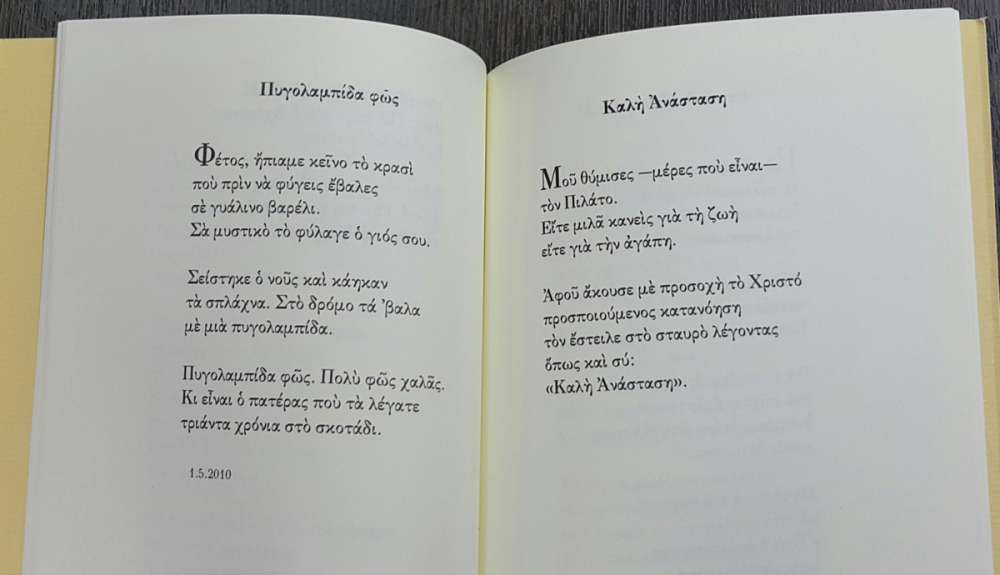 Πυγολαμπίδα φῶς
Φέτος, ἤπιαμε κεῖνο τὸ κρασὶ
ποὺ πρὶν νὰ φύγεις ἔβαλες
σὲ γυάλινο βαρέλι.
Σὰ μυστικὸ τὸ φύλαγε ὁ γιός σου.
Σείστηκε ὁ νοῦς καὶ κάηκαν
τὰ σπλάχνα. Στὸ δρόμο τά ’βαλα
μὲ μιὰ πυγολαμπίδα.
Πυγολαμπίδα φῶς. Πολὺ φῶς χαλᾶς.
Κι εἶναι ὁ πατέρας ποὺ τὰ λέγατε
τριάντα χρόνια στὸ σκοτάδι.
1.5.2010
Καλὴ Ἀνάσταση
Μοῦ θύμισες —μέρες ποὺ εἶναι—
τὸν Πιλάτο.
Εἴτε μιλᾶ κανεὶς γιὰ τὴ ζωὴ
εἴτε γιὰ τὴν ἀγάπη.
Ἀφοῦ ἄκουσε μὲ προσοχὴ τὸ Χριστό
προσποιούμενος κατανόηση
τὸν ἔστειλε στὸ σταυρὸ λέγοντας
ὅπως καὶ σύ:
«Καλὴ Ἀνάσταση».